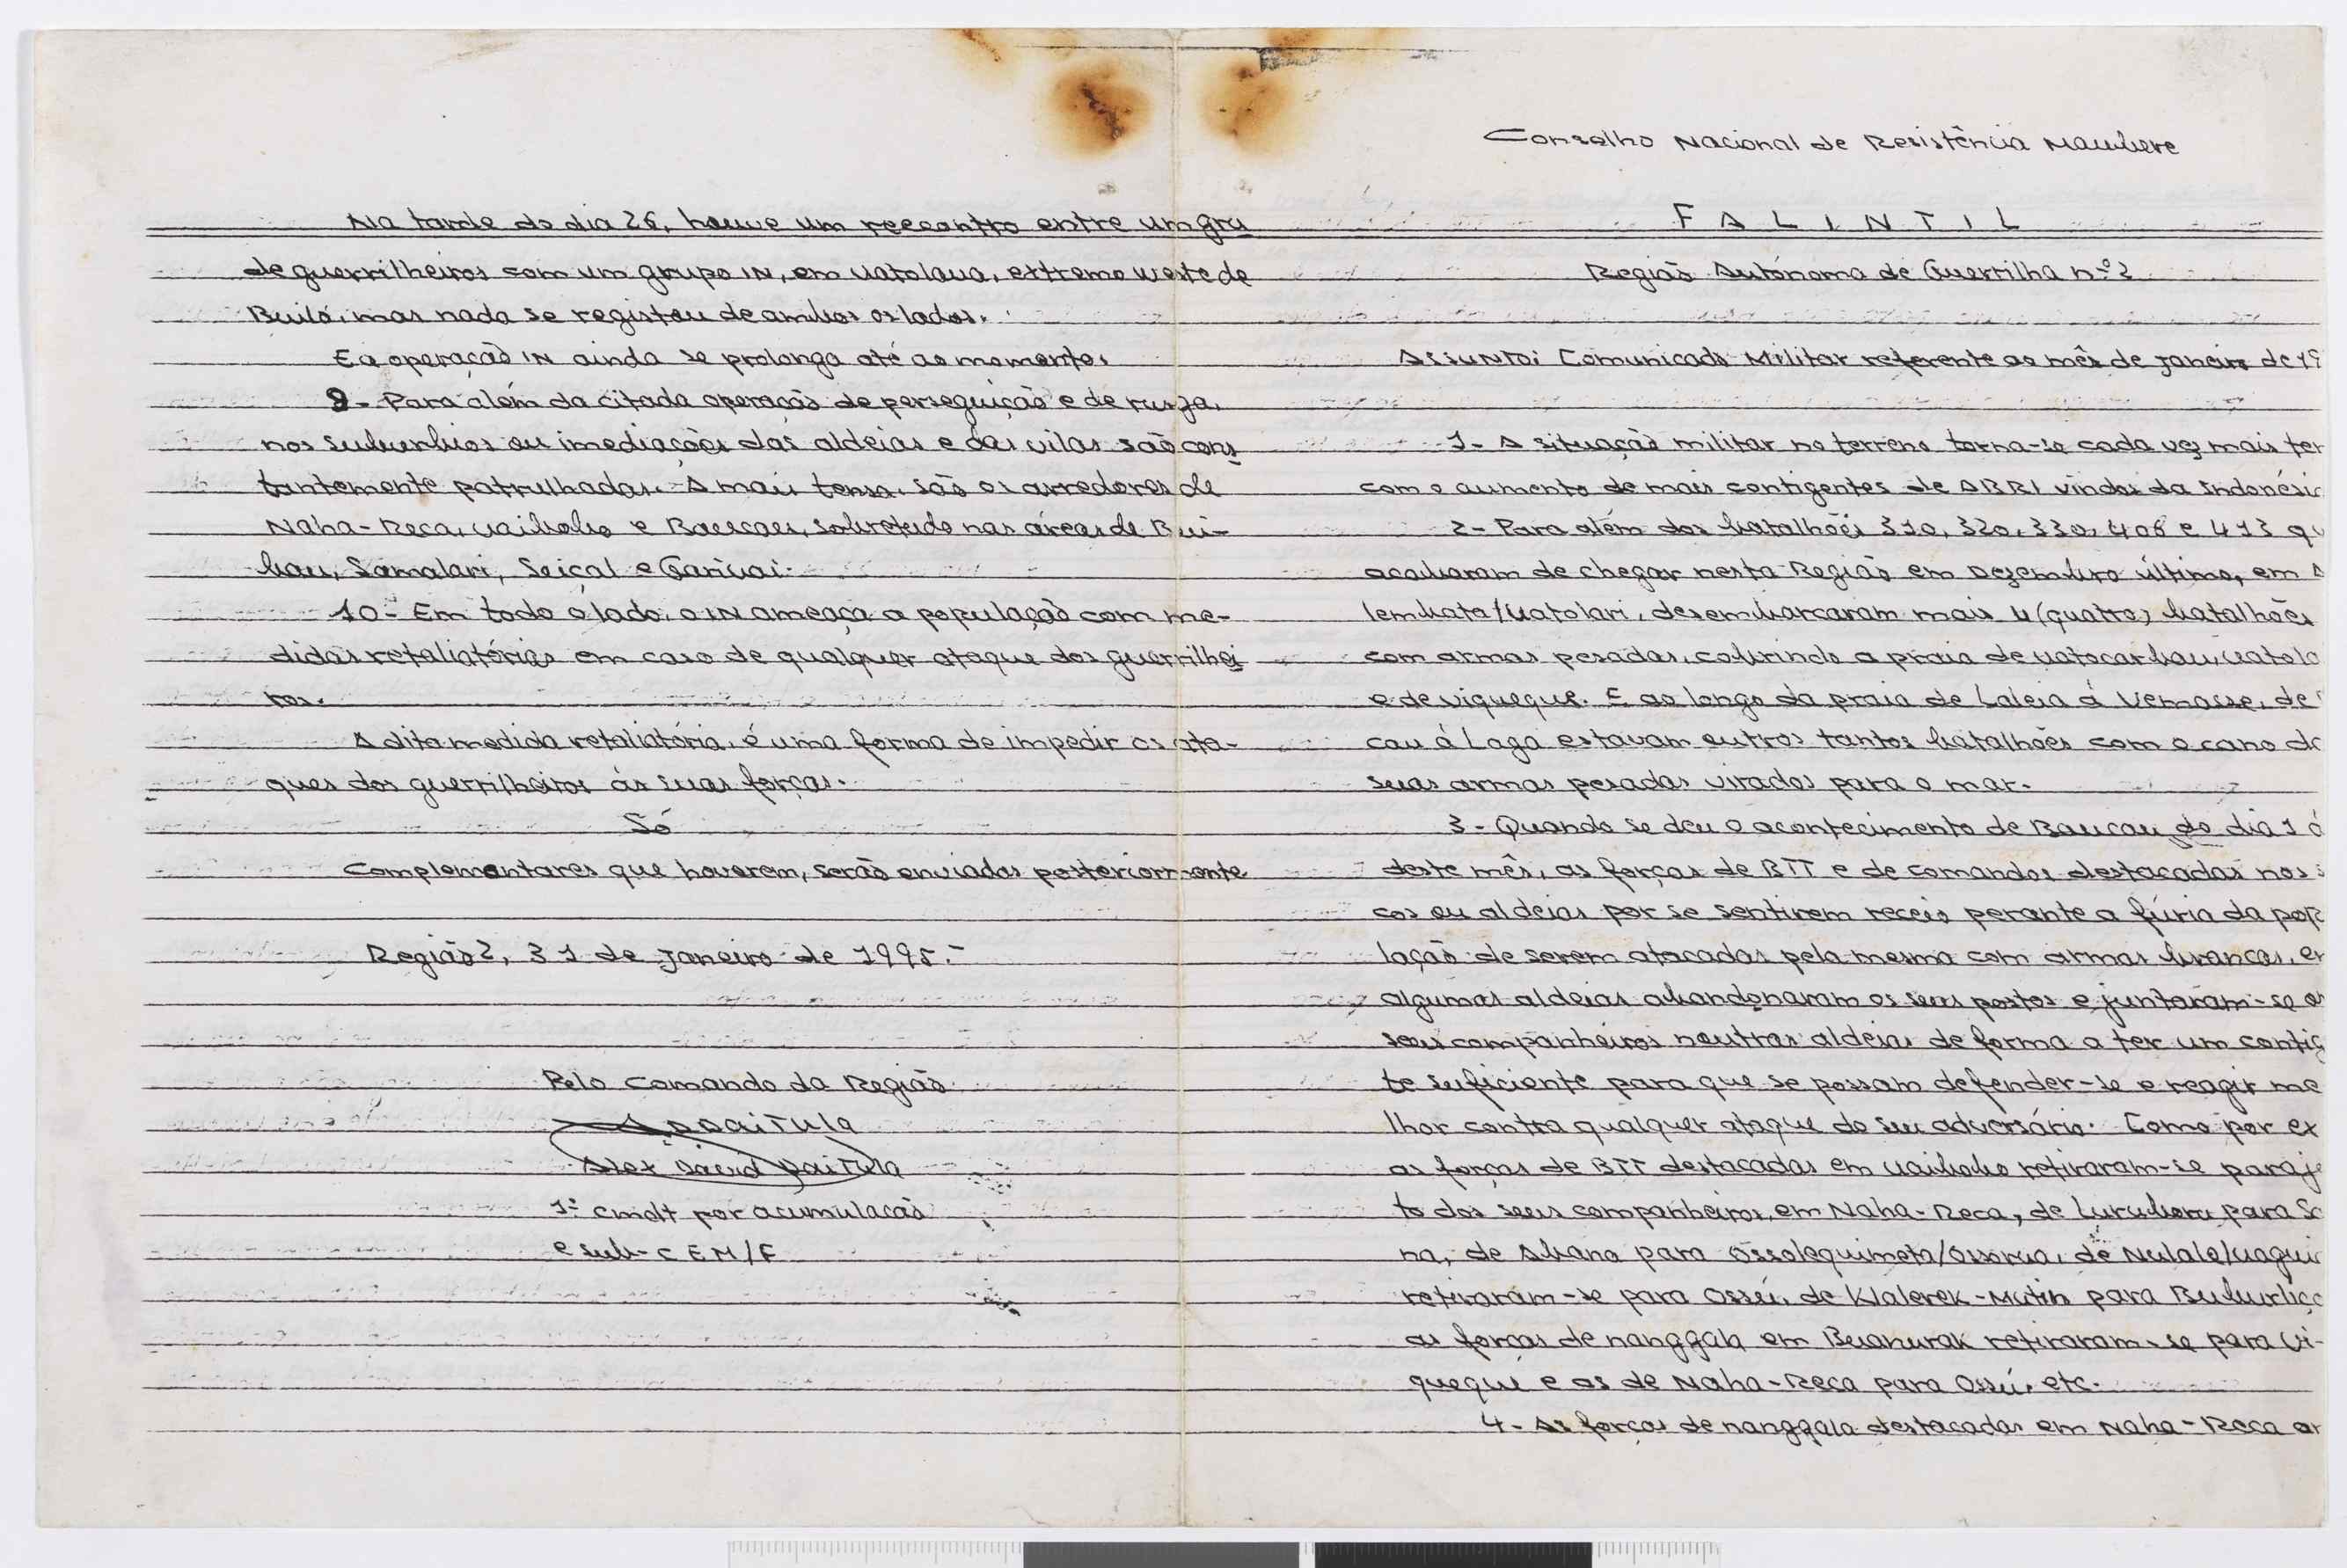 Na tarde do dia 26, houve um reecontro entre um gru
de guerrilheiros com um grupo IN, em Uatolaua, extremo weste de
Builó, mas nada se registou de ambos os lados.
E a operação IN ainda se prolonga até ao momento.
9- Para além da citada operação de perseguição e de rusga,
nos suburbios ou imediações das aldeias e das vilas são cons
tantemente patrulhadas. A mais tensa, são os arredores de
Naha-Reca, Uaibobo e Baucau, sobretudo nas áreas de Bui-
bau, Samalari, Seiçal e Gariuai.
10- Em todo o lado, o IN ameaça a população com me-
didas retaliatórias em caso de qualquer ataque dos guerrilhei
ros.
A dita medida retaliatória, é uma forma de impedir os ata-
ques dos guerrilheiros ás suas forças.
Só
Complementares que haverem, serão enviadas posteriormente
Região 2, 31 de Janeiro de 1995.-
Pelo Comando da Região
Alex Daitula
1º cmdt por acumulação
e sub-CEM/F
Conselho Nacional de Resistência Maubere
FALINTIL
Região Autónoma de Guerrilha nº 2
Assunto: Comunicado Militar referente ao mês de Janeiro de 19
1- A situação militar no terreno torna-se cada vez mais ten
com o aumento de mais contigentes de ABRI vindos da Indonésia
2- Para além dos batalhões 310, 320, 330, 406 e 413 qu
acabaram de chegar nesta Região em Dezembro último, em A
lembata/Uatolari, desembarcaram mais 4 (quatro) batalhões
com armas pesadas, cobrindo a praia de Uatocarbau, Uatola
e de Viqueque. E ao longo da praia de Laleia á Vemasse, de
cau á Laga estavam outros tantos batalhões com o cano da
suas armas pesadas virados para o mar.
3- Quando se deu o acontecimento de Baucau do dia 1 á
deste mês, as forças de BTT e de comandos destacadas nos s
cos ou aldeias por se sentirem receio perante a fúria da pop
lação de serem atacadas pela mesma com armas brancas, en
algumas aldeias abandonaram os seus postos e juntaram-se a
seus companheiros noutras aldeias de forma a ter um contig
te suficiente para que se possam defender-se e reagir me
lhor contra qualquer ataque do seu adversário. Como por ex
as forças de BTT destacadas em Uaibobo retiraram-se para j
to dos seus companheiros, em Naha-Reca, de para
na, de Abana para Ossolequimeta/Ossorua, de Nulale/Uagui
retiraram-se para Ossú, de Klalerek-Mutin para
as forças de nanggala em Buanurak retiraram-se para Vi-
queque e as de Naha-Reca para Ossú, etc.
4- As forças de nanggala destacadas em Naha-Reca ar